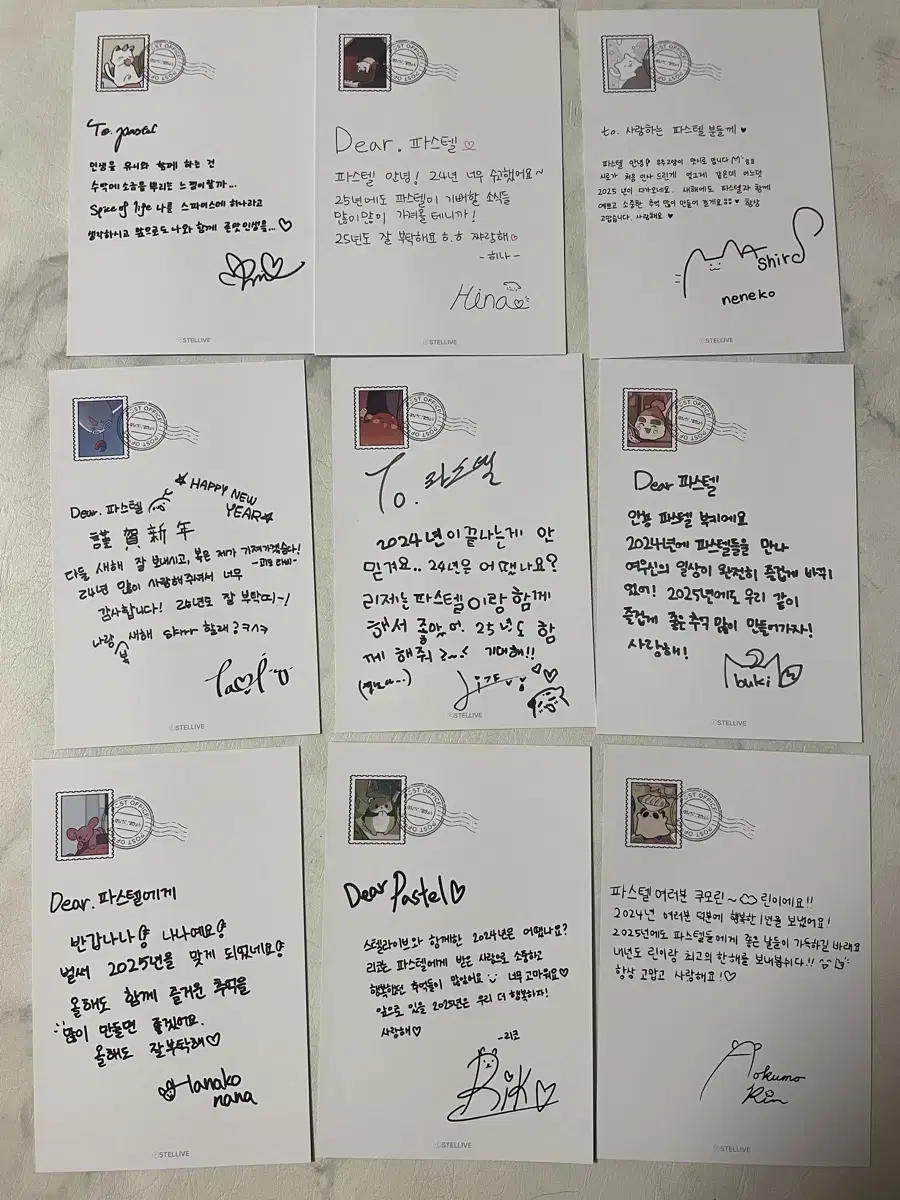 POST OFFICE
To. pastel
인생을 유니와 함께 하는 건
수박에 소금을 뿌리는 느낌이랄까...
Spice of life 나를 스파이스에 하나라고
생각하시고 앞으로도 나와 함께 즌맛 인생을... ♡
STELLIVE
POST OFFICE
Dear. 파스텔 ♡
파스텔 안녕! 24년 너무 수고했어요~
25년에도 파스텔이 기뻐할 소식들
많이많이 가져올 테니까!
25년도 잘 부탁해요 ㅎ.ㅎ 쨔랑해♡
-히나-
Hina
STELLIVE
POST OFFICE
to. 사랑하는 파스텔 분들께 ♥
파스텔 안녕?
2025년이 다가오네요. 새해에도 파스텔과 함께
예쁘고 소중한 추억 많이 만들어 항상
고맙습니다. 사랑해요 ♥
Mashiro
neneko
STELLIVE
POST OFFICE
Dear. 파스텔
★HAPPY NEW
YEAR★
謹賀新年
다들 새해 잘 보내시고, 복은 제가 가져가겠습다!
24년 많이 사랑해주셔서 너무
감사합니다! 25년도 잘 부탁띠~!
나랑 새해 할래?
복
STELLIVE
POST OFFICE
To. 파스텔
2024년이 끝나는게 안
믿겨요.. 24년은 어땠나요?
리제는 파스텔이랑 함께
해서 좋았어. 25년도 함
께 해줘 기대해!!
STELLIVE
POST OFFICE
Dear 파스텔
안뇽 파스텔 부키에요
2024년에 파스텔들을 만나
여우신의 일상이 완전히 즐겁게 바뀌
었어! 2025년에도 우리 같이
즐겁게 좋은추억 많이 만들어가자!
사랑해!
buki
STELLIVE
POST OFFICE
Dear. 파스텔에게
반갑나나! 나나예요!
벌써 2025년을 맞게 되었네요!
올해도 함께 즐거운 추억을
많이 만들면 좋겠어요.
올해도 잘부탁해♡
Hanako
nana
STELLIVE
POST OFFICE
Dear Pastel♡
스텔라이브와 함께한 2024년은 어땠나요?
리코는 파스텔에게 받은 사랑으로 소중하고
행복했던 추억들이 많았어요 너무 고마워요♡
앞으로 있을 2025년은 우리 더 행복하자!
사랑해♡
-리코
Riko
STELLIVE
POST OFFICE
파스텔 여러분 쿠모린~ 린이에요!!
2024년 여러분 덕분에 행복한 1년을 보냈어요!
2025년에도 파스텔들에게 좋은 날들이 가득하길 바래요
내년도 린이랑 최고의 한해를 보내봅쉬다!!
항상 고맙고 사랑해요!♡
Aokumo
Rin
STELLIVE